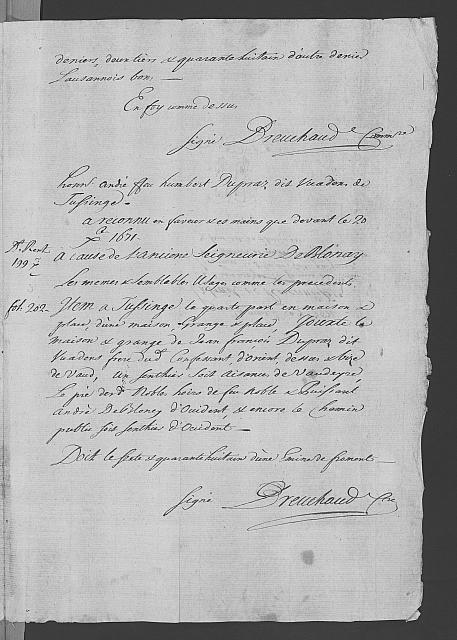 deniers, deux tiers & quarante huitain d'autre denier
Lausannois bon.
En foy comme dessus
signé Dreuchaud Commre
honn. andré ffeu humbert Dupraz dit Vuadens de
Tussinge.
a reconnu en faveur & es mains que devant le 20
1671
Nt. Rent
199
A cause de l'ancienne Seigneurie De Blonay
Les memes & semblables Usages comme les precedents.
fol. 202
Item a Tussinge la quarte part en maison &
place, d'une maison, grange & place, Jouxte la
maison & grange de Jean françois Dupraz dit
Vuadens frere dud. Confessant d'orient, dessus & bize
de vaud, un senthier soit aisance de
Le pré desd. Nobles hoirs de feu Noble & Puissant
André De Bloney d'Occident & encore le Chemin
public soit senthier d'Occident
Doit le sixte & quarante huitain d'une Emine de froment
signé Dreuchaud Cre